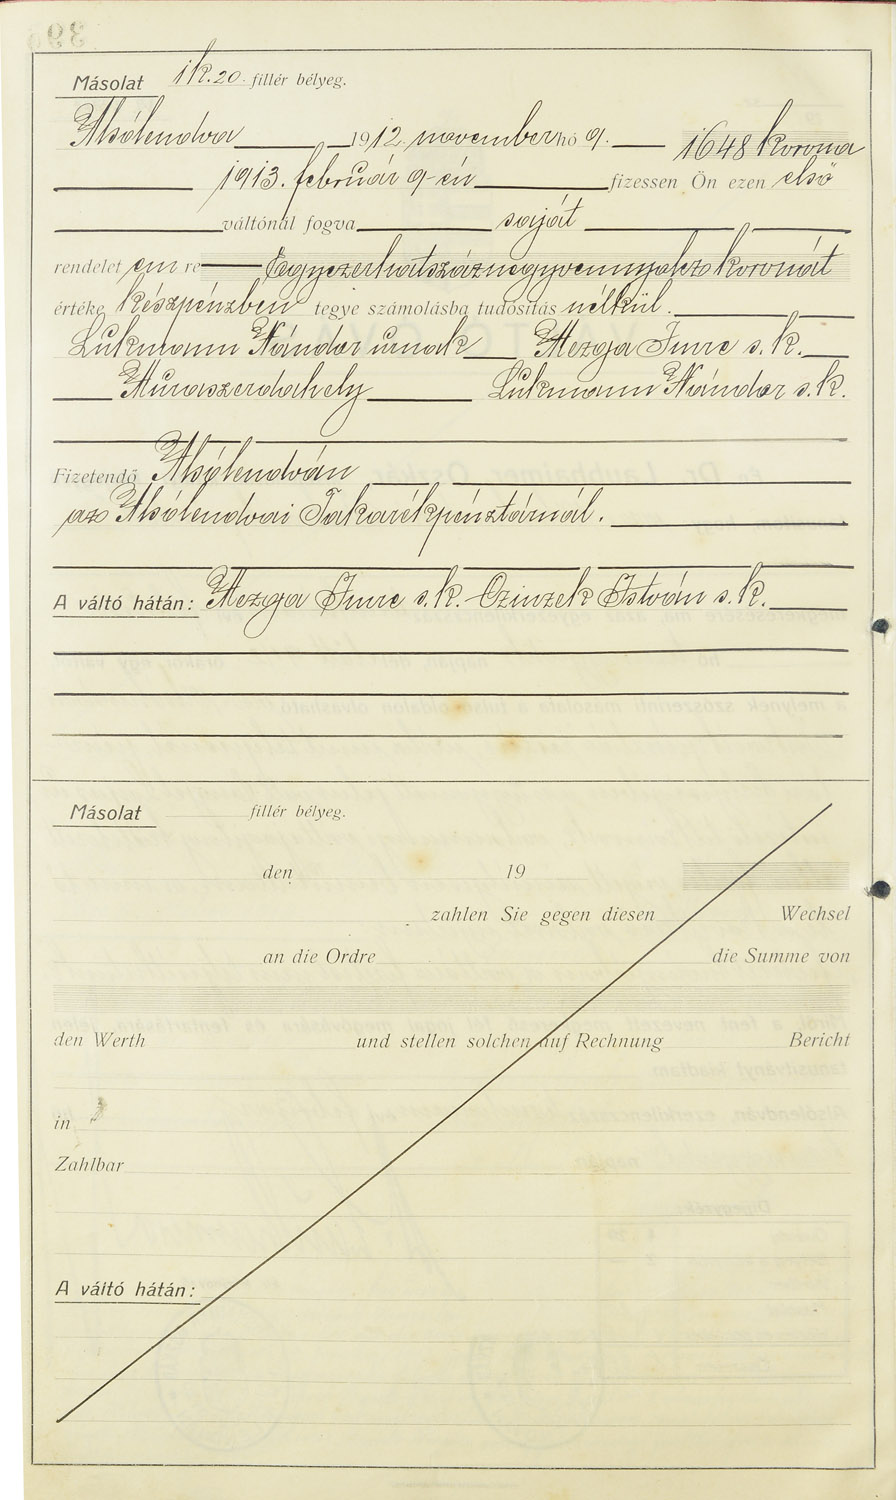 Másolat 1 k. 20. fillér bélyeg.
Alsólendva 1912 november hó 9. 1648 korona
1913. február 9-én fizessen Ön ezen első
váltónál fogva saját
rendelet em re Egyezerhatszáznegyvennyolcz koronát
értéke készpénzben tegye számolásba tudósítás nélkül.
Lukmann Nándor úrnak Mezga Imre s. k.
Muraszerdahely Lukmann Nándor s. k.
Fizetendő Alsólendván
az Alsólendvai Takarékpénztárnál.
A váltó hátán: Mezga Imre s. k. Czinzek István s. k.
Másolat fillér bélyeg.
den 19
zahlen Sie gegen diesen Wechsel
an die Ordre die Summe von
den Werth und stellen solchen auf Rechnung Bericht
in
Zahlbar
A váltó hátán: